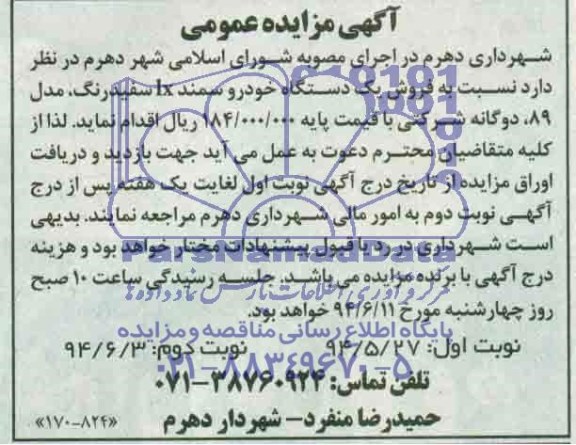 آگهی مزایده عمومی
شهرداری دهرم در اجرای مصوبه شورای اسلامی شهر دهرم در نظر
دارد نسبت به فروش یک دستگاه خودرو سمند lx سفیدرنگ، مدل
۸۹، دوگانه شرکتی با قیمت پایه ۱۸۴/۰۰۰/۰۰۰ ریال اقدام نماید. لذا از
کلیه متقاضیان محترم دعوت به عمل می آید جهت بازدید و دریافت
اوراق مزایده از تاریخ درج آگهی نوبت اول لغایت یک هفته پس از درج
آگهی نوبت دوم به امور مالی شهرداری دهرم مراجعه نمایند. بدیهی
است شهرداری در رد یا قبول پیشنهادات مختار خواهد بود و هزینه
ParsNamadData
درج آگهی با برنده مزایده می باشد. جلسه رسیدگی ساعت ۱۰ صبح
مرکز فرآوری اطلاعات پارس نماد داده ها
روز چهارشنبه مورخ ۹۴/۶/۱۱ خواهد بود.
پایگاه اطلاع رسانی مناقصه و مزایده
نوبت اول: ۹۴/۵/۲۷ نوبت دوم: ۹۴/۶/۳
۰۲۱-۸۸۳۴۹۶۷۰-۵
تلفن تماس: ۳۸۷۶۰۹۲۴-۰۷۱
حمیدرضا منفرد- شهردار دهرم «۱۷۰-۸۲۴»